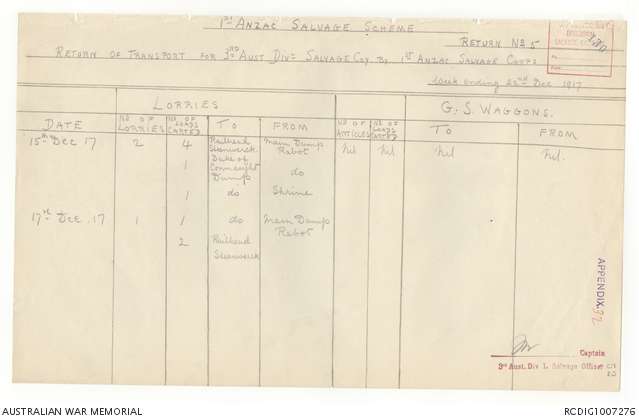 1st ANZAC SALVAGE SCHEME
RETURN No 5
RETURN OF TRANSPORT FOR 3RD AUST. DIV. SALVAGE COY. By 1st ANZAC SALVAGE CORPS
Week ending 22nd Dec 1917
LORRIES
G.S. WAGGONS.
DATE
No OF LORRIES
No OF LOADS CARTED
TO
FROM
No OF ARTICLES
No OF LOADS CARTED
TO
FROM
15th Dec 17 2 4 Railhead Steenwerck Main Dump Rabot Nil Nil Nil Nil.
1 Duke of Connaught Dump do
1 do Shrine
17th Dec. 17 1 1 do Main Dump Rabot
2 Railhead Steenwerck
APPENDIX
Captain
3rd Aust. Div l. Salvage Officer
AUSTRALIAN WAR MEMORIAL
RCDIG1007276